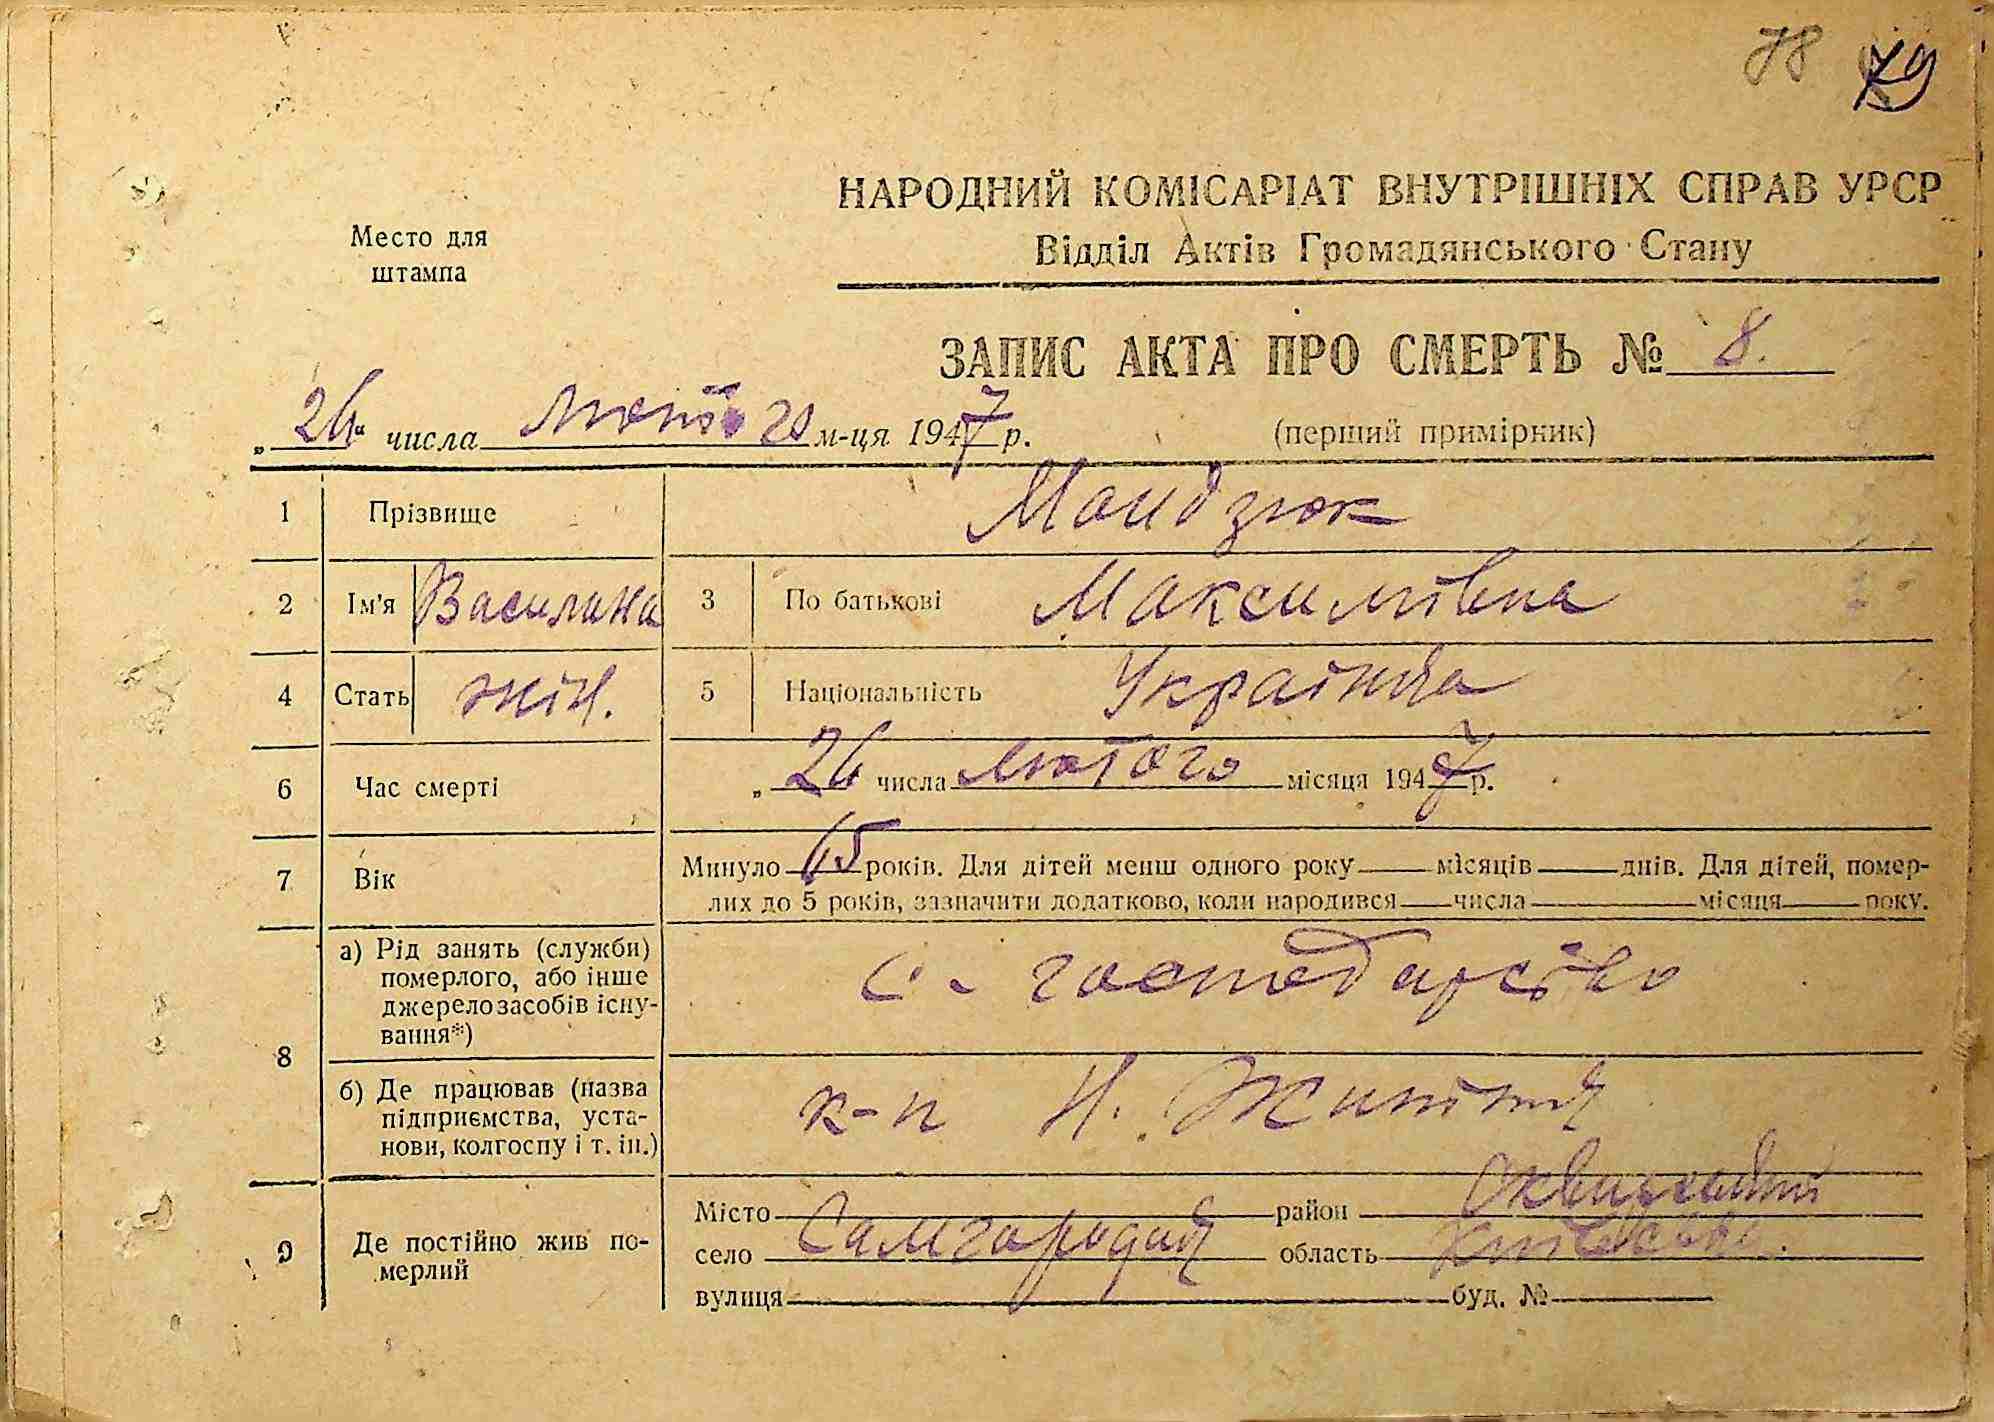 78 79
НАРОДНИЙ КОМІСАРІАТ ВНУТРІШНІХ СПРАВ УРСР
Место для
штампа
Відділ Актів Громадянського Стану
ЗАПИС АКТА ПРО СМЕРТЬ № 8.
„26“ числа лютого м-ця 1947 р.
(перший примірник)
1 Прізвище Мандзюк
2 Ім'я Василина 3 По батькові Максимівна
4 Стать жін. 5 Національність Українка
6 Час смерті „26 числа лютого місяця 1947 р.
7 Вік Минуло 65 років. Для дітей менш одного року місяців днів. Для дітей, помер-
лих до 5 років, зазначити додатково, коли народився числа місяця року.
8 а) Рід занять (служби)
померлого, або інше
джерело засобів існу-
вання*)
с. господарство
б) Де працював (назва
підприємства, уста-
нови, колгоспу і т. ін.)
к-п Н. Життя
9 Де постійно жив по-
мерлий
Місто район Сквирський
село Самгородок область Київська.
вулиця буд. №